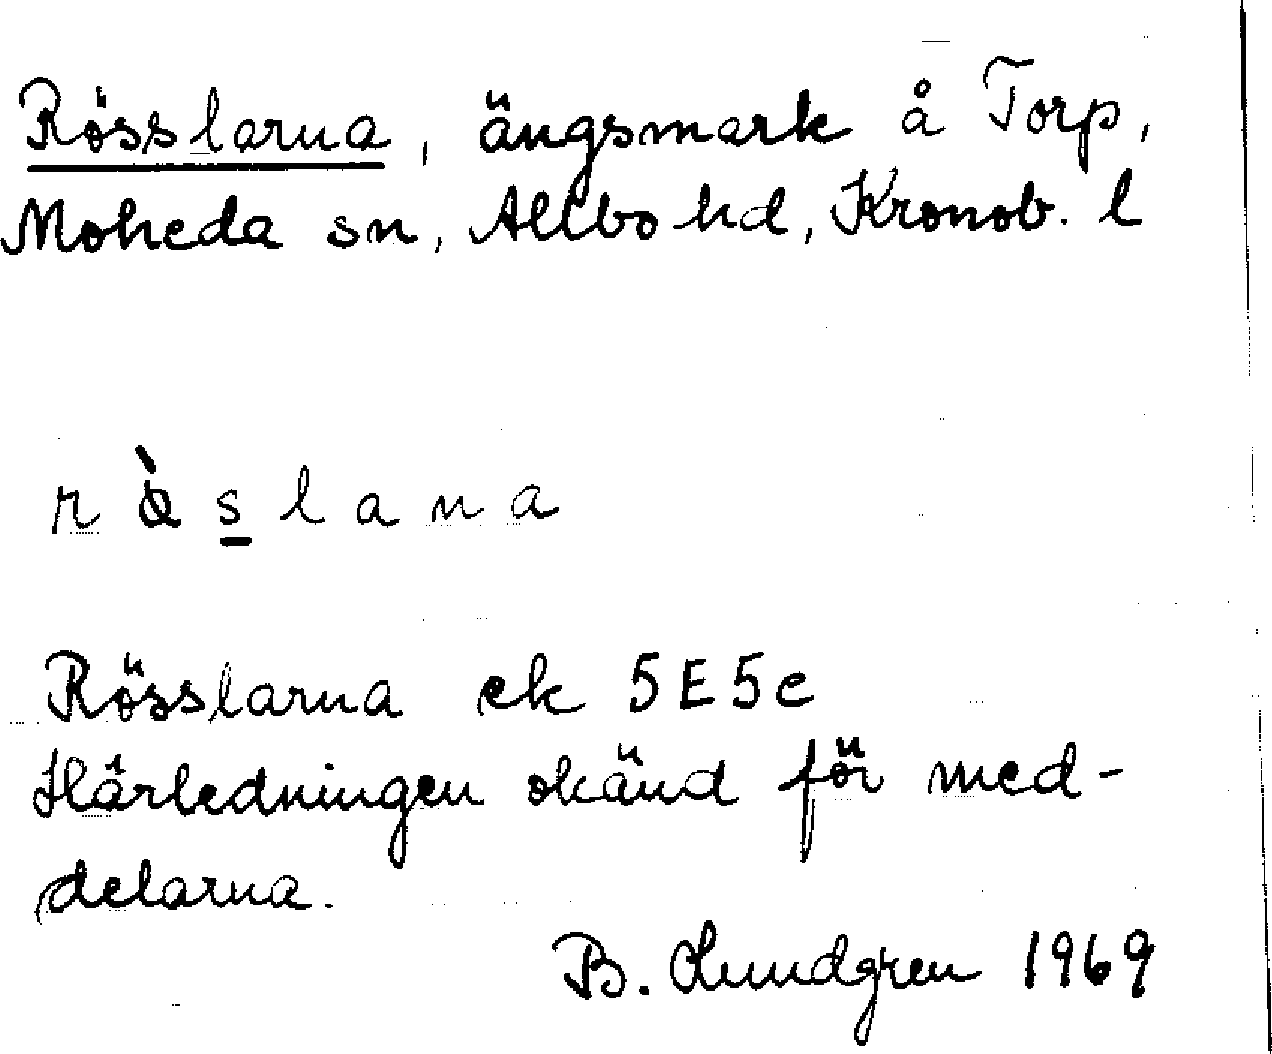 Rösslarna, ängsmark å Torp,
Moheda sn, Allbo hd, Kronob. l
Rösslarna ek 5E5c
Härledningen okänd för med-
delarna.
B. Lundgren 1969